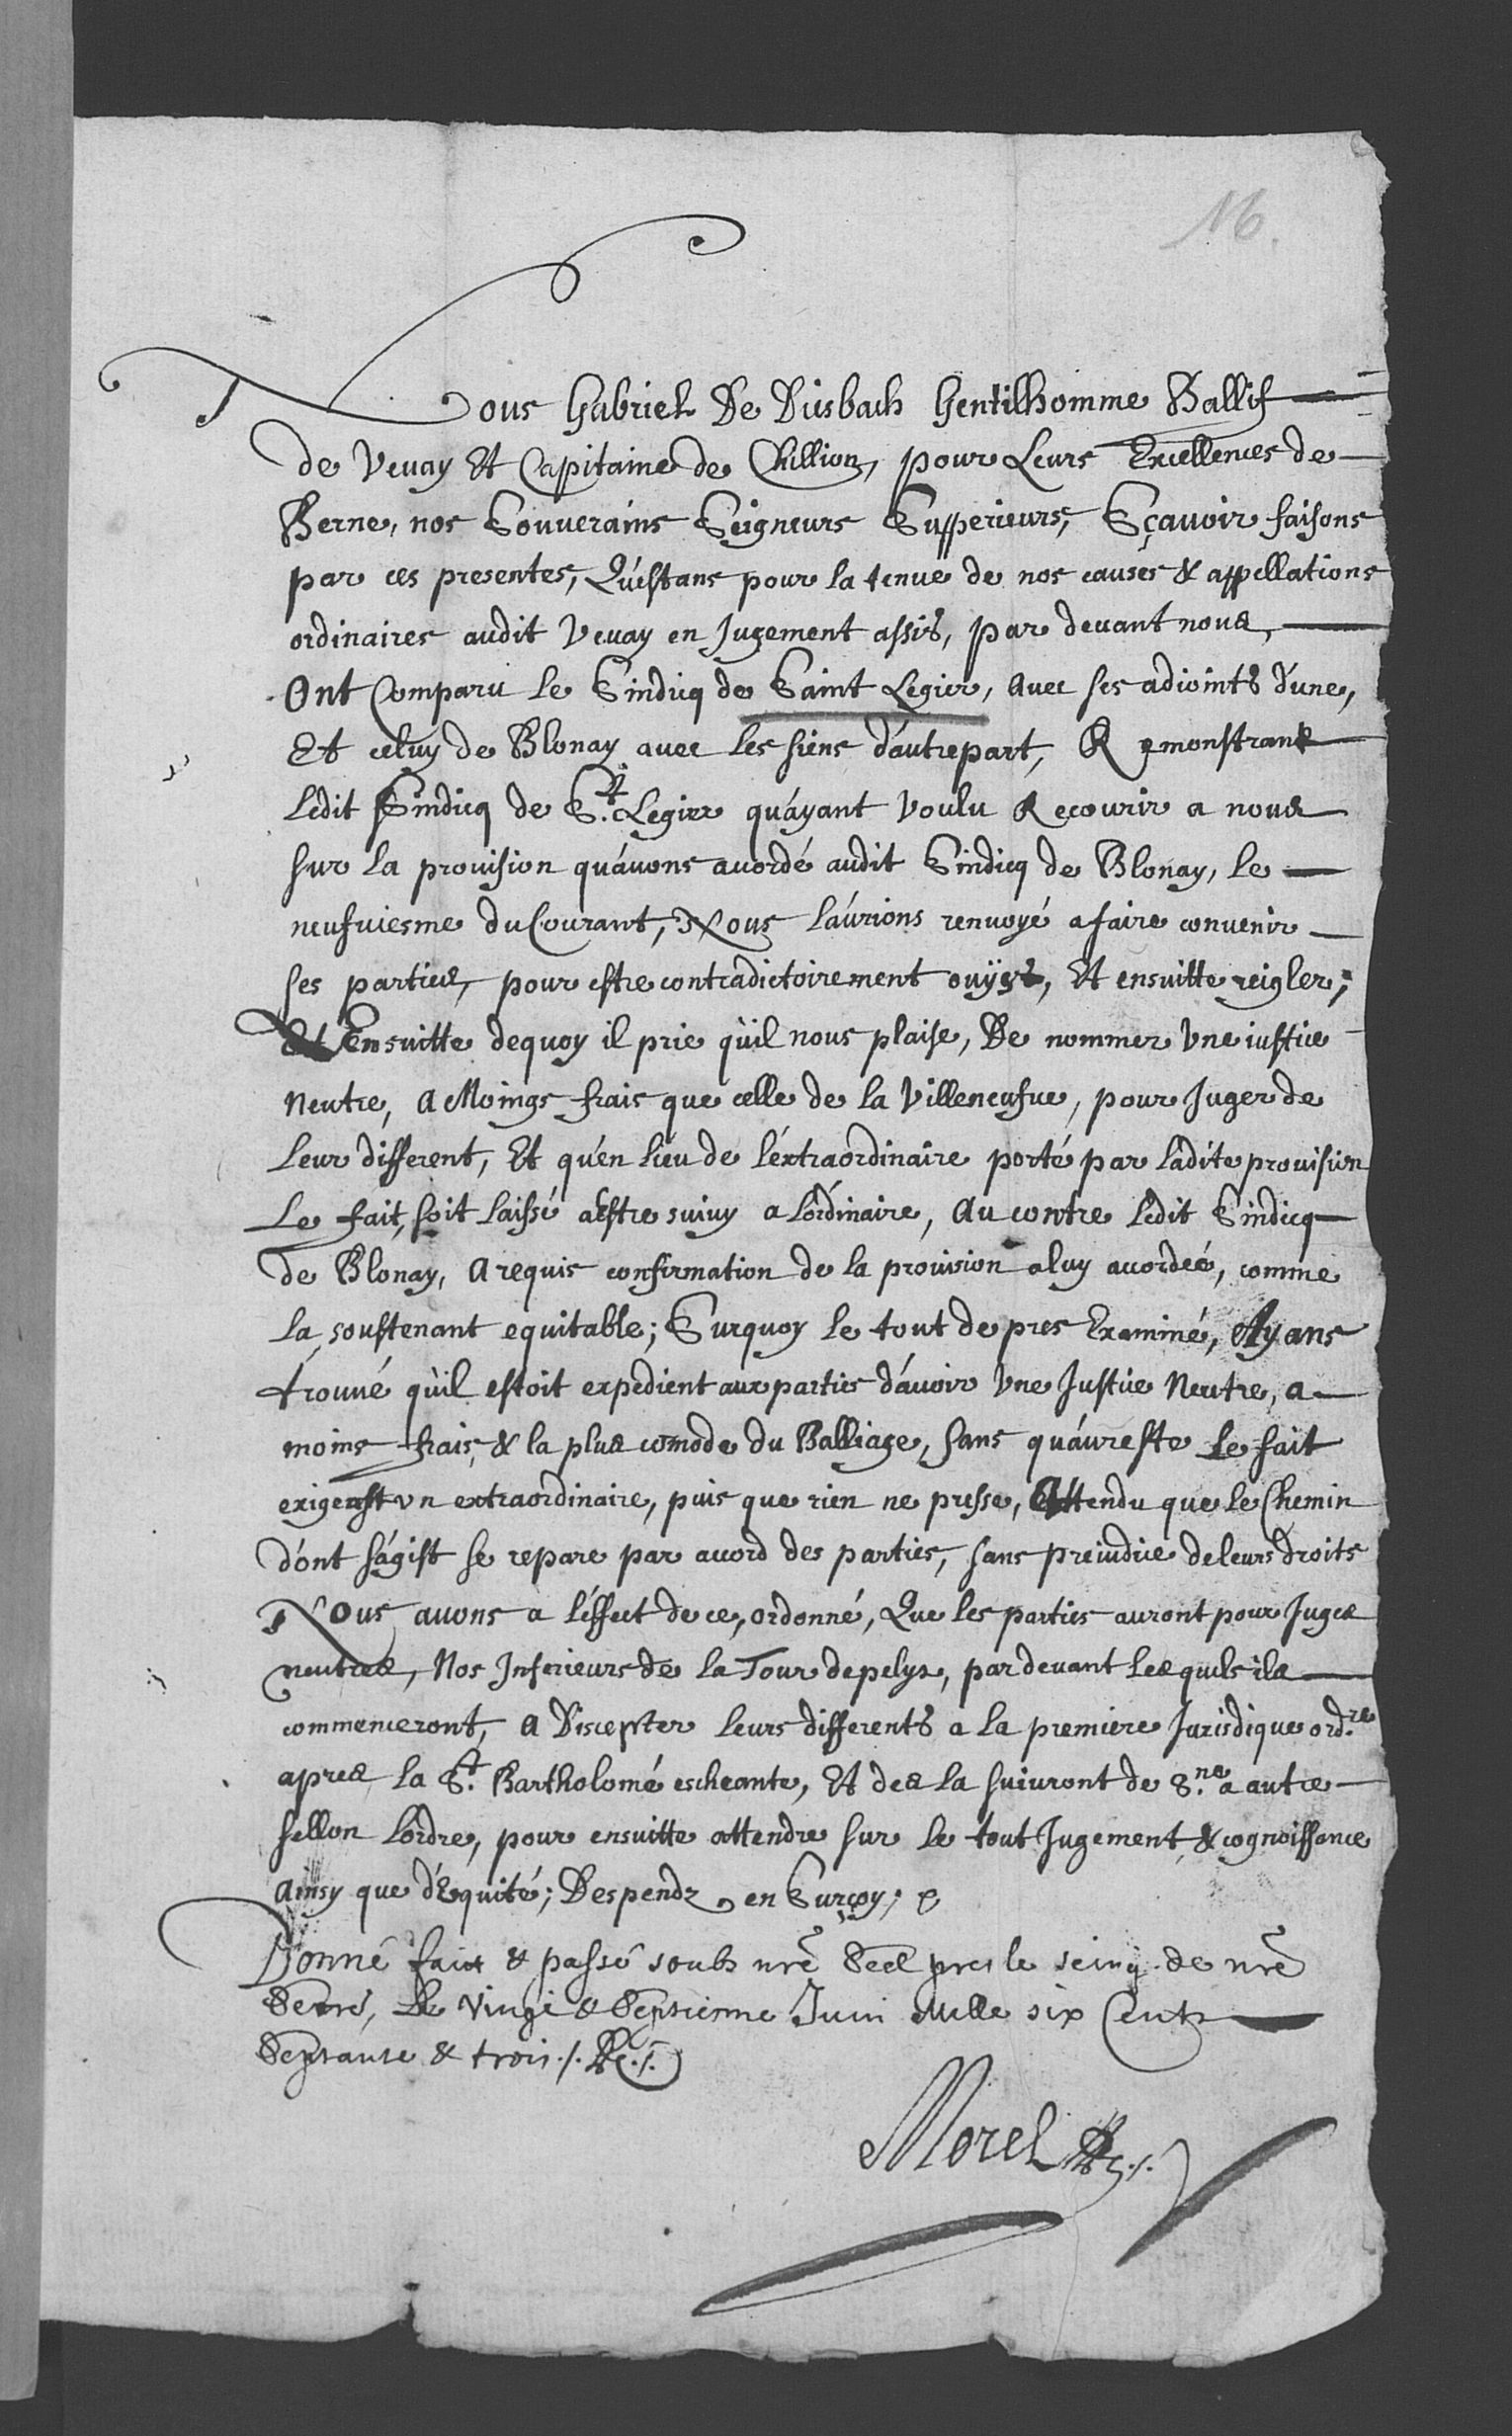 16.
Nous Gabriel De Diesbach Gentilhomme Ballif
de Vevay Et Capitaine de Chillion, pour Leurs Excellences de
Berne, nos Souverains Seigneurs Supperieurs, Sçavoir faisons
par ces presentes, Qu'estans pour la tenue de nos causes & appellations
ordinaires audit Vevay en Jugement assis, par devant nous,
Ont Comparu le Sindicq de Saint Legier, avec ses adioints d'une,
Et celuy de Blonay avec les siens d'autrepart, Remonstrant
ledit Sindicq de S.t Legier qu'ayant voulu Recourir a nous
sur la provision qu'avons acordé audit Sindicq de Blonay, le
neufviesme du Courant, Nous l'aurions renvoyé a faire convenir
ses parties, pour estre contradictoirement ouyes, Et ensuitte reigler;
Et ensuitte dequoy il prie qu'il nous plaise, De nommer Une iustice
Neutre, a Moings frais que celle de la Villeneufve, pour Juger de
Leur different, Et qu'en lieu de l'extraordinaire porté par ladite provision
Le fait, soit laissé a estre suivy a l'ordinaire, Au contre ledit Sindicq
de Blonay, A requis confirmation de la provision a luy accordée, comme
la soustenant equitable; Surquoy le tout de pres Examiné, Ayans
trouvé qu'il estoit expedient aux parties d'avoir Une Justice Neutre, a
moins frais, & la plus comode du Balliage, sans qu'au reste Le fait
exigeast un extraordinaire, puis que rien ne presse, Attendu que le Chemin
d'ont s'agist se repare par acord des parties, sans preiudice de leurs droits
Nous avons a l'effect de ce, ordonné, Que les parties auront pour Juges
neutres, Nos Inferieurs de la Tour de pelys, par devant lesquels ils
commenceront, a Discepter leurs differents a la premiere Jurisdique ord.re
apres la S.t Bartholomé escheante, Et des la suivront de 8.ne a autre
sellon l'ordre, pour ensuitte attendre sur le tout Jugement & cognoissance
Ainsy que d'Equité; Despendz en Surçoy;
Donné fait & passé soubs nre Seel & le seing de nre
Secre, Le Vingt & Septieme Juin Mille six Cents
Septante & trois ./.
Morel